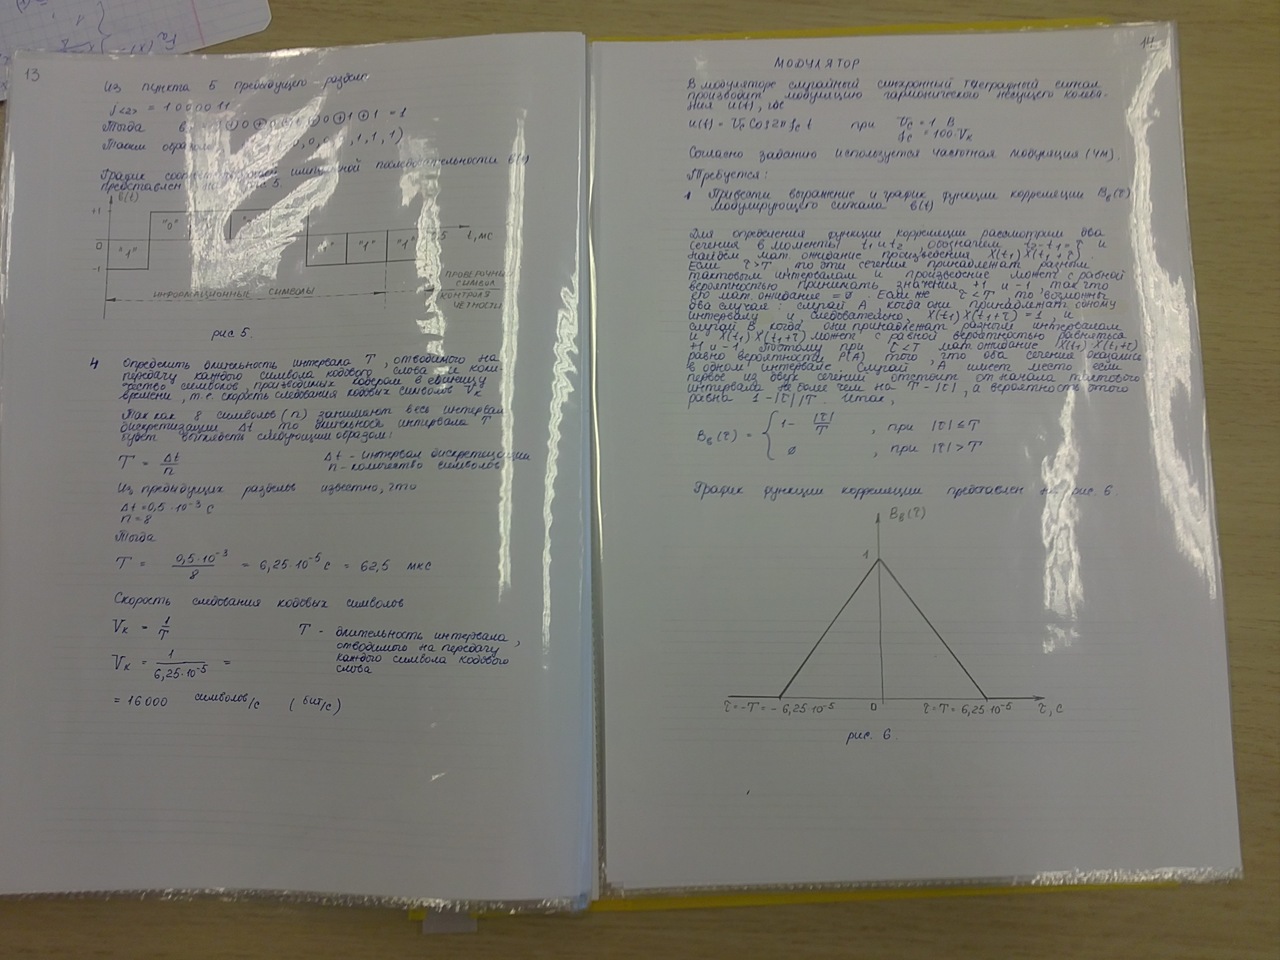 13
Из пункта 5 предыдущего раздела
j<2> = 1000011
Тогда
Таким
График импульсной последовательности b(t)
представлен рис 5.
b(t)
+1
0
-1
"1" "0" "1" "1"
t, мс
ИНФОРМАЦИОННЫЕ СИМВОЛЫ
ПРОВЕРОЧНЫЙ
СИМВОЛ
КОНТРОЛЯ
ЧЕТНОСТИ
рис 5.
4 Определить длительность интервала T, отводимого на
передачу каждого символа кодового слова и коли-
чество символов, производимых кодером в единицу
времени, т.е. скорость следования кодовых символов Vк
Так как 8 символов (n) занимают весь интервал
дискретизации Δt то длительность интервала T
будет выглядеть следующим образом:
T = Δt/n Δt - интервал дискретизации
n - количество символов
Из предыдущих разделов известно, что
Δt = 0,5·10⁻³ с
n = 8
Тогда
T = 0,5·10⁻³/8 = 6,25·10⁻⁵ с = 62,5 мкс
Скорость следования кодовых символов
Vк = 1/T T - длительность интервала,
отводимого на передачу
Vк = 1/6,25·10⁻⁵ = каждого символа кодового
слова
= 16000 символов/с (бит/с)
14
МОДУЛЯТОР
В модуляторе случайный синхронный сигнал
производит модуляцию гармонического несущего колеба-
ния u(t), где
u(t) = Vc Cos2πfc t при Vc = 1 В
fc = 100·Vк
Согласно заданию используется частотная модуляция (ЧМ).
Требуется:
1 Привести выражение и график функции корреляции Bb(τ)
модулирующего сигнала b(t)
Для определения функции корреляции рассмотрим два
сечения в моменты t1 и t2, обозначем t2-t1=τ и
найдем мат. ожидание произведения X(t1)X(t1+τ).
Если τ>T, то эти сечения принадлежат разным
тактовым интервалам и произведение может с равной
вероятностью принимать значения +1 и -1, так что
его мат. ожидание = ø. Если же τ<T, то возможны
два случая: случай А когда они принадлежат одному
интервалу и следовательно, X(t1)X(t1+τ)=1, и
случай В когда они принадлежат разным интервалам
и X(t1)X(t1+τ) может с равной вероятностью равняться
+1 и -1. Поэтому при τ<T мат. ожидание X(t1)X(t1+τ)
равно вероятности P(A) того, что два сечения оказались
в одном интервале. Случай А имеет место если
первое из двух сечений отстоит от начала тактового
интервала не более чем на T-|τ|, а вероятность этого
равна 1-|τ|/T. Итак,
Bb(τ) = { 1 - |τ|/T , при |τ| ≤ T
ø , при |τ| > T
График функции корреляции представлен на рис. 6
Bb(τ)
1
τ=-T=-6,25·10⁻⁵ 0 τ=T=6,25·10⁻⁵ τ, с
рис. 6.